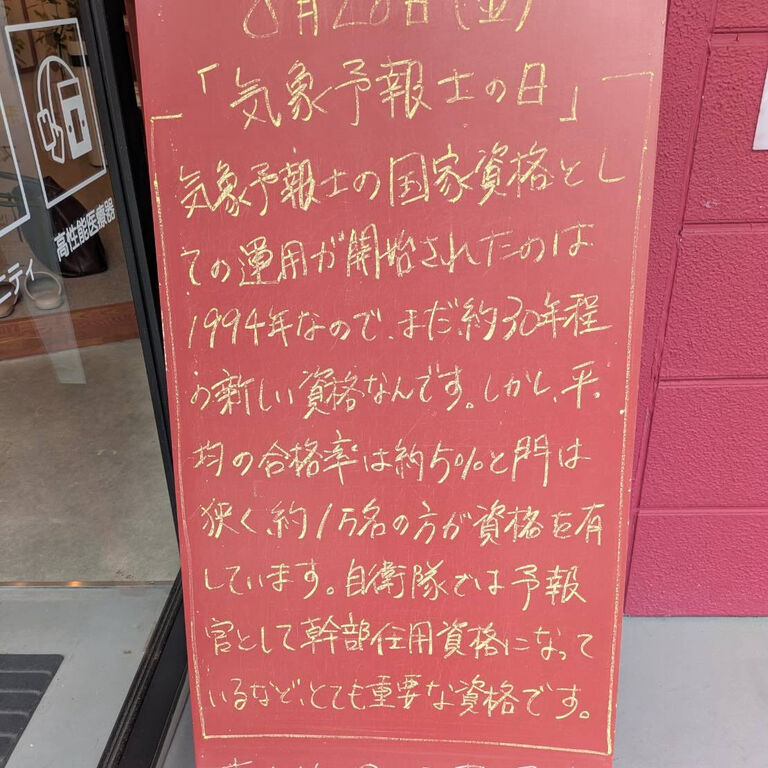 8月28日(金)
「気象予報士の日」
気象予報士の国家資格とし
ての運用が開始されたのは
1994年なので、まだ約30年程
の新しい資格なんです。しかし、平
均の合格率は約5%と門は
狭く、約1万名の方が資格を有
しています。自衛隊では予報
官として幹部任用資格になって
いるなど、とても重要な資格です。
高性能医療器
ニティ